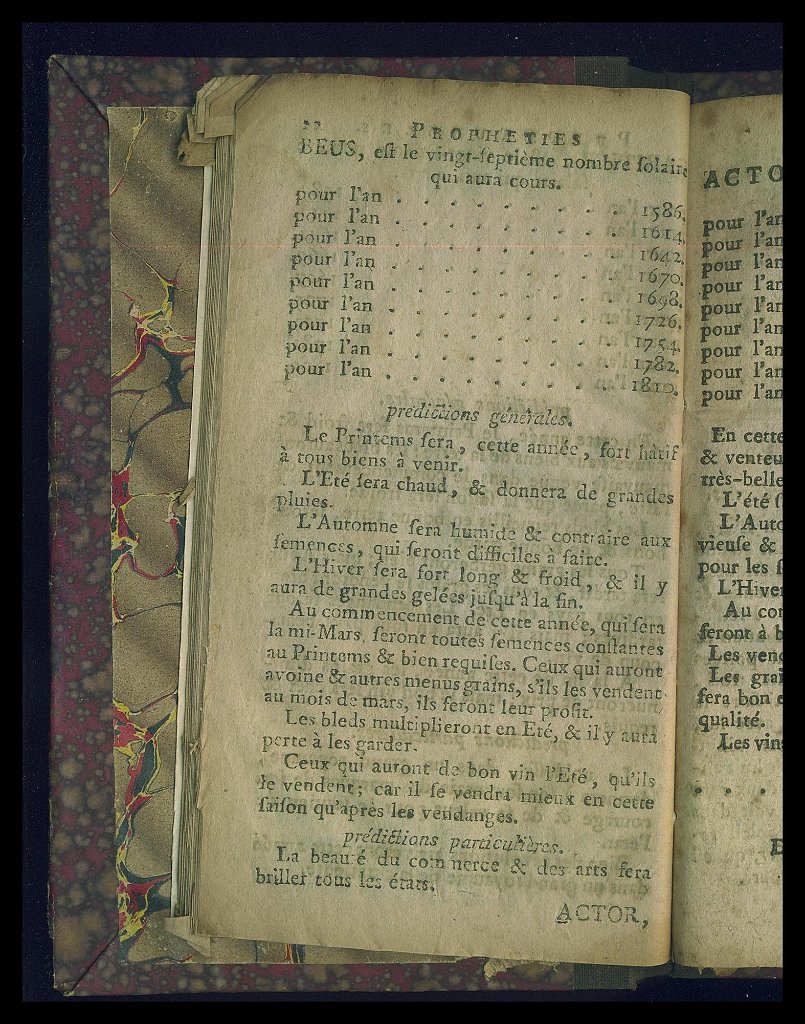 PROPHETIES
BEUS, eſt le vingt-ſeptième nombre ſolaire
qui aura cours.
pour l'an . . . . . . . . 1586.
pour l'an . . . . . . . . 1614.
pour l'an . . . . . . . . 1642.
pour l'an . . . . . . . . 1670.
pour l'an . . . . . . . . 1698.
pour l'an . . . . . . . . 1726.
pour l'an . . . . . . . . 1754.
pour l'an . . . . . . . . 1782.
pour l'an . . . . . . . . 1810.
prédictions générales.
Le Printems ſera, cette année, fort hâtif
à tous biens à venir.
L'Eté ſera chaud, & donnera de grandes
pluies.
L'Automne ſera humide & contraire aux
ſemences, qui ſeront difficiles à faire.
L'Hiver ſera fort long & froid, & il y
aura de grandes gelées juſqu'à la fin.
Au commencement de cette année, qui ſera
la mi-Mars, ſeront toutes ſemences conſtantes
au Printems & bien requiſes. Ceux qui auront
avoine & autres menus grains, s'ils les vendent
au mois de mars, ils feront leur profit.
Les bleds multiplieront en Eté, & il y aura
perte à les garder.
Ceux qui auront de bon vin l'Eté, qu'ils
le vendent; car il ſe vendra mieux en cette
ſaiſon qu'après les vendanges.
prédictions particulières.
La beauté du commerce & des arts ſera
briller tous les états.
ACTOR,
ACTO
pour l'an
pour l'an
pour l'an
pour l'an
pour l'an
pour l'an
pour l'an
pour l'an
pour l'an
En cette
& venteu
très-belle
L'été ſ
L'Auto
vieuſe &
pour les ſ
L'Hiver
Au con
ſeront à b
Les vend
Les grai
ſera bon e
qualité.
Les vins